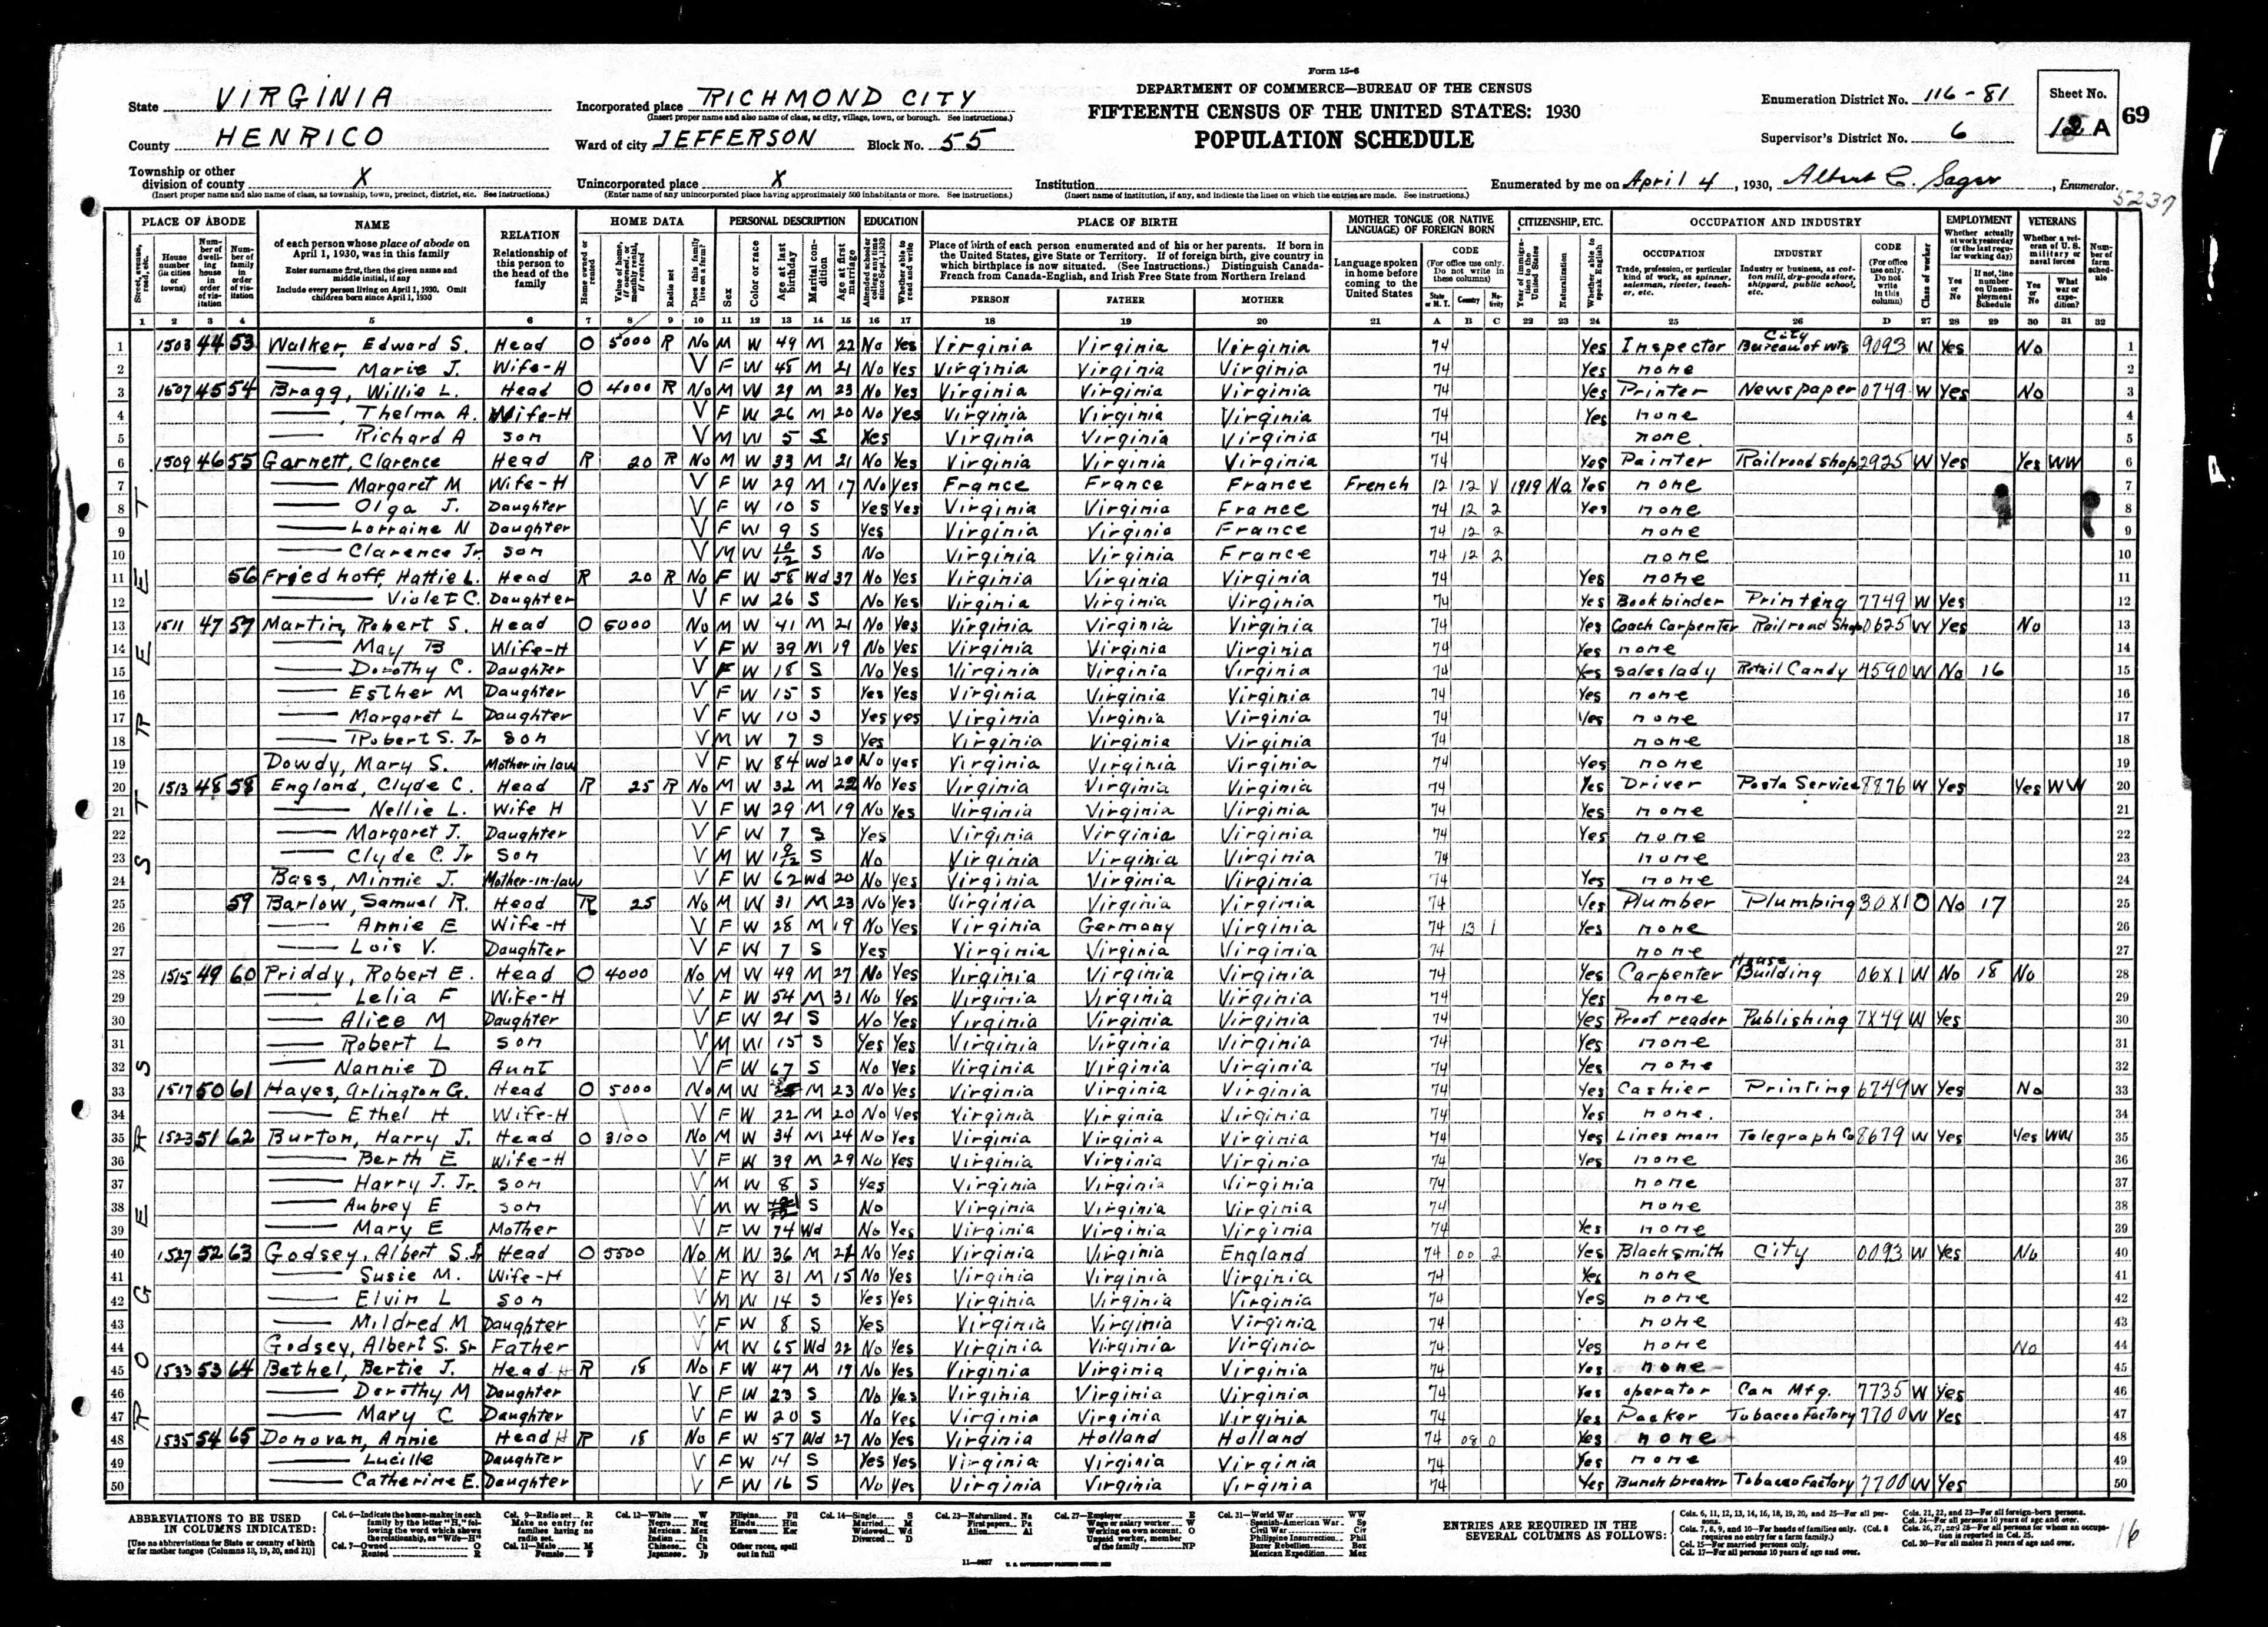 Form 15-6
State VIRGINIA
County HENRICO
Township or other division of county X
(Insert proper name and also name of class, as township, town, precinct, district, etc. See instructions.)
Incorporated place RICHMOND CITY
(Insert proper name and also name of class, as city, village, town, or borough. See instructions.)
Ward of city JEFFERSON Block No. 55
Unincorporated place X
(Enter name of any unincorporated place having approximately 500 inhabitants or more. See instructions.)
DEPARTMENT OF COMMERCE—BUREAU OF THE CENSUS
FIFTEENTH CENSUS OF THE UNITED STATES: 1930
POPULATION SCHEDULE
Institution
(Insert name of institution, if any, and indicate the lines on which the entries are made. See instructions.)
Enumeration District No. 116-81
Supervisor's District No. 6
Sheet No.
A
69
Enumerated by me on April 4, 1930, Albert C. Sager, Enumerator.
5237
PLACE OF ABODE NAME RELATION HOME DATA PERSONAL DESCRIPTION EDUCATION PLACE OF BIRTH MOTHER TONGUE (OR NATIVE LANGUAGE) OF FOREIGN BORN CITIZENSHIP, ETC. OCCUPATION AND INDUSTRY EMPLOYMENT VETERANS
1 2 3 4 5 6 7 8 9 10 11 12 13 14 15 16 17 18 19 20 21 A B C 22 23 24 25 26 D 27 28 29 30 31 32
ROGERS STREET
1 1503 44 53 Walker, Edward S. Head O 5000 R No M W 49 M 22 No Yes Virginia Virginia Virginia 74 Yes Inspector City Bureau of Wts 9093 W Yes No 1
2 — Marie J. Wife-H V F W 45 M 21 No Yes Virginia Virginia Virginia 74 Yes none 2
3 1507 45 54 Bragg, Willie L. Head O 4000 R No M W 29 M 23 No Yes Virginia Virginia Virginia 74 Yes Printer Newspaper 0749 W Yes No 3
4 — Thelma A. Wife-H V F W 26 M 20 No Yes Virginia Virginia Virginia 74 Yes none 4
5 — Richard A son V M W 5 S Yes Virginia Virginia Virginia 74 none 5
6 1509 46 55 Garnett, Clarence Head R 20 R No M W 33 M 21 No Yes Virginia Virginia Virginia 74 Yes Painter Railroad shop 2925 W Yes Yes WW 6
7 — Margaret M Wife-H V F W 29 M 17 No Yes France France France French 12 12 V 1919 Na Yes none 7
8 — Olga J. Daughter V F W 10 S Yes Yes Virginia Virginia France 74 12 2 Yes none 8
9 — Lorraine N Daughter V F W 9 S Yes Virginia Virginia France 74 12 2 none 9
10 — Clarence Jr. son V M W 10/12 S No Virginia Virginia France 74 12 2 none 10
11 56 Friedhoff, Hattie L. Head R 20 R No F W 58 Wd 37 No Yes Virginia Virginia Virginia 74 Yes none 11
12 — Violet C. Daughter V F W 26 S No Yes Virginia Virginia Virginia 74 Yes Bookbinder Printing 7749 W Yes 12
13 1511 47 57 Martin, Robert S. Head O 5000 No M W 41 M 21 No Yes Virginia Virginia Virginia 74 Yes Coach Carpenter Railroad Shop 0625 W Yes No 13
14 — May B Wife-H V F W 39 M 19 No Yes Virginia Virginia Virginia 74 Yes none 14
15 — Dorothy C. Daughter V F W 18 S No Yes Virginia Virginia Virginia 74 Yes saleslady Retail Candy 4590 W No 16 15
16 — Esther M Daughter V F W 15 S Yes Yes Virginia Virginia Virginia 74 Yes none 16
17 — Margaret L Daughter V F W 10 S Yes yes Virginia Virginia Virginia 74 Yes none 17
18 — Robert S. Jr son V M W 7 S Yes Virginia Virginia Virginia 74 none 18
19 Dowdy, Mary S. Mother in law V F W 84 Wd 20 No yes Virginia Virginia Virginia 74 Yes none 19
20 1513 48 58 England, Clyde C. Head R 25 R No M W 32 M 22 No Yes Virginia Virginia Virginia 74 Yes Driver Posta Service 8876 W Yes Yes WW 20
21 — Nellie L. Wife H V F W 29 M 19 No Yes Virginia Virginia Virginia 74 Yes none 21
22 — Margaret J. Daughter V F W 7 S Yes Virginia Virginia Virginia 74 Yes none 22
23 — Clyde C. Jr Son V M W S No Virginia Virginia Virginia 74 none 23
24 Bass, Minnie J. Mother-in-law V F W 62 Wd 20 No Yes Virginia Virginia Virginia 74 Yes none 24
25 59 Barlow, Samuel R. Head R 25 No M W 31 M 23 No Yes Virginia Virginia Virginia 74 Yes Plumber Plumbing 30X1 O No 17 25
26 — Annie E Wife-H V F W 28 M 19 No Yes Virginia Germany Virginia 74 13 1 Yes none 26
27 — Lois V. Daughter V F W 7 S Yes Virginia Virginia Virginia 74 none 27
28 1515 49 60 Priddy, Robert E. Head O 4000 No M W 49 M 27 No Yes Virginia Virginia Virginia 74 Yes Carpenter House Building 06X1 W No 18 No 28
29 — Lelia F Wife-H V F W 54 M 31 No Yes Virginia Virginia Virginia 74 Yes none 29
30 — Alice M Daughter V F W 21 S No Yes Virginia Virginia Virginia 74 Yes Proof reader Publishing 7X49 W Yes 30
31 — Robert L son V M W 15 S Yes Yes Virginia Virginia Virginia 74 Yes none 31
32 — Nannie D Aunt V F W 67 S No Yes Virginia Virginia Virginia 74 Yes none 32
33 1517 50 61 Hayes, Arlington G. Head O 5000 No M W M 23 No Yes Virginia Virginia Virginia 74 Yes Cashier Printing 6749 W Yes No 33
34 — Ethel H Wife-H V F W 22 M 20 No Yes Virginia Virginia Virginia 74 Yes none. 34
35 1523 51 62 Burton, Harry J. Head O 3100 No M W 34 M 24 No Yes Virginia Virginia Virginia 74 Yes Lines man Telegraph Co 8679 W Yes Yes WW 35
36 — Berth E Wife-H V F W 39 M 29 No Yes Virginia Virginia Virginia 74 Yes none 36
37 — Harry J. Jr. son V M W 8 S Yes Virginia Virginia Virginia 74 none 37
38 — Aubrey E son V M W S No Virginia Virginia Virginia 74 none 38
39 — Mary E Mother V F W 74 Wd No Yes Virginia Virginia Virginia 74 Yes none 39
40 1527 52 63 Godsey, Albert S. Jr Head O 5500 No M W 36 M 21 No Yes Virginia Virginia England 74 00 2 Yes Blacksmith City 0093 W Yes No 40
41 — Susie M. Wife-H V F W 31 M 15 No Yes Virginia Virginia Virginia 74 Yes none 41
42 — Elvin L son V M W 14 S Yes Yes Virginia Virginia Virginia 74 Yes none 42
43 — Mildred M Daughter V F W 8 S Yes Virginia Virginia Virginia 74 none 43
44 Godsey, Albert S. Sr Father V M W 65 Wd 22 No Yes Virginia Virginia Virginia 74 Yes none No 44
45 1533 53 64 Bethel, Bertie J. Head H R 18 No F W 47 M 19 No Yes Virginia Virginia Virginia 74 Yes none 45
46 — Dorothy M Daughter V F W 23 S No Yes Virginia Virginia Virginia 74 Yes operator Can Mfg. 7735 W Yes 46
47 — Mary C Daughter V F W 20 S No Yes Virginia Virginia Virginia 74 Yes Packer Tobacco Factory 7700 W Yes 47
48 1535 54 65 Donovan, Annie Head H R 18 No F W 57 Wd 27 No Yes Virginia Holland Holland 74 08 0 Yes none 48
49 — Lucille Daughter V F W 14 S Yes Yes Virginia Virginia Virginia 74 Yes none 49
50 — Catherine E. Daughter V F W 16 S No Yes Virginia Virginia Virginia 74 Yes Bunch breaker Tobacco Factory 7700 W Yes 50
ABBREVIATIONS TO BE USED IN COLUMNS INDICATED:
[Use no abbreviations for State or country of birth or for mother tongue (Columns 18, 19, 20, and 21)]
ENTRIES ARE REQUIRED IN THE SEVERAL COLUMNS AS FOLLOWS:
16